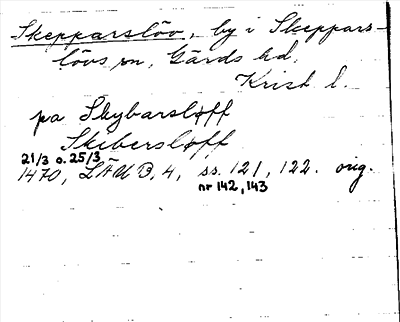 Skepparslöv, by i Skeppars-
lövs sn, Gärds hd.
Krist. l.
pa Skybarsløff
Skibersløff
21/3 o. 25/3
1470, LÄUB, 4, ss. 121, 122. orig.
nr 142, 143